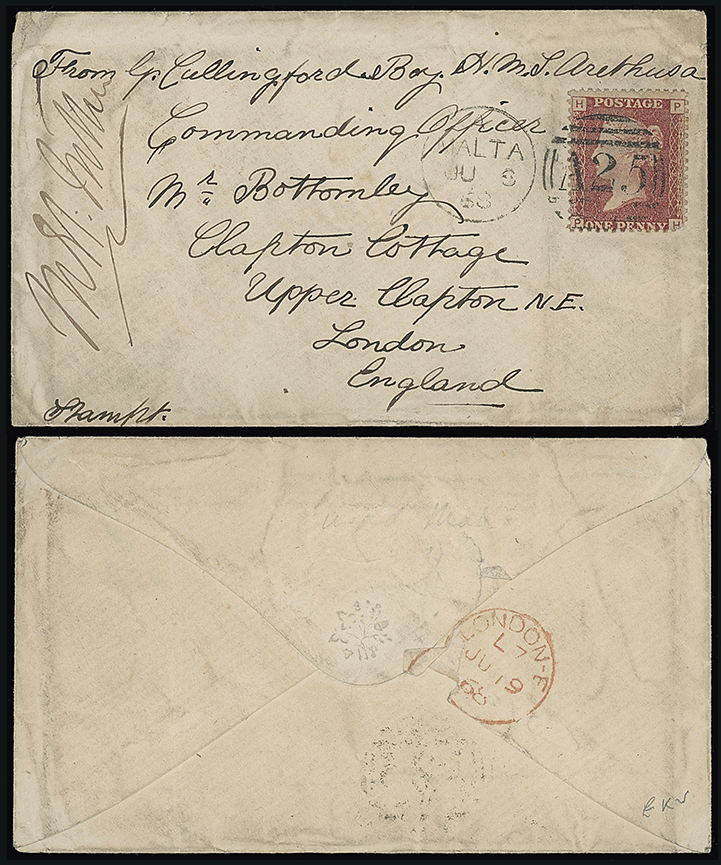 From G. Cullingford Boy. H. M. S. Arethusa
Commanding Officer
Mr Bottomley
Clapton Cottage
Upper Clapton N.E.
London
England
Stampt.
MALTA
JU 9
68
H POSTAGE P
A25
P ONE PENNY H
LONDON-E
L7
JU 19
68